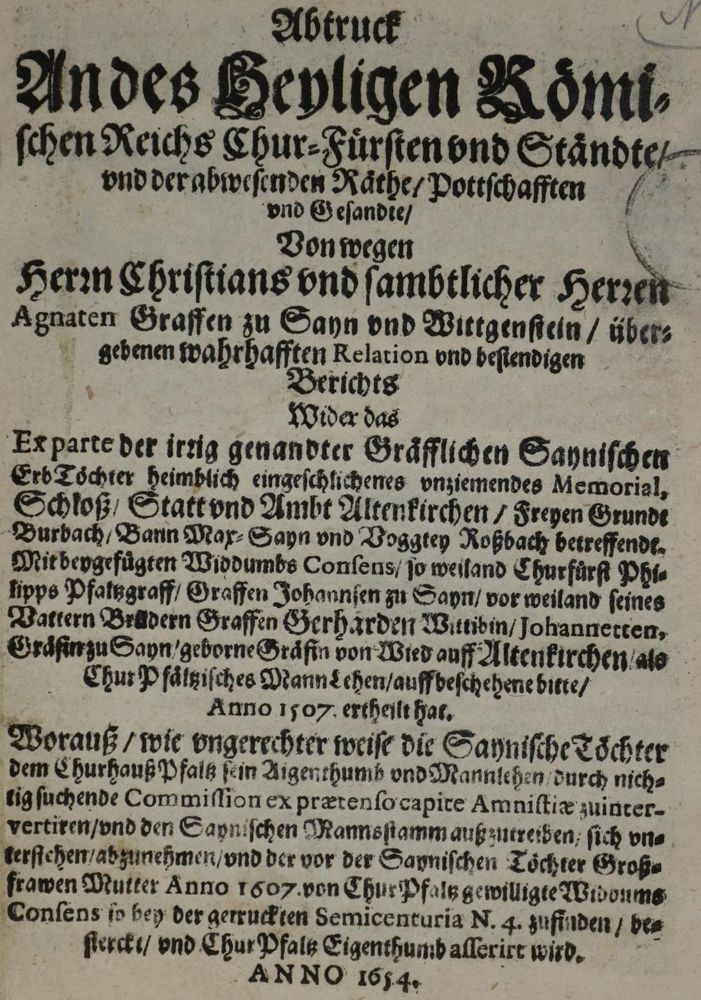 Abtruck
An des Heyligen Römi-
schen Reichs Chur-Fürsten vnd Ständte/
vnd der abwesenden Räthe/ Pottschafften
vnd Gesandte/
Von wegen
Herrn Christians vnd sambtlicher Herren
Agnaten Graffen zu Sayn vnd Wittgenstein / über-
gebenen wahrhafften Relation vnd bestendigen
Berichts
Wider das
Ex parte der irrig genandter Gräfflichen Saynischen
Erb Töchter heimblich eingeschlichenes vnziemendes Memorial,
Schloß/ Statt vnd Ambt Altenkirchen / Freyen Grundt
Burbach/ Bann Max-Sayn vnd Voggtey Roßbach betreffendt.
Mit beygefügten Widdumbs Consens/ so weiland Churfürst Phi-
lipps Pfaltzgraff/ Graffen Johannsen zu Sayn/ vor weiland seines
Vattern Brüdern Graffen Gerharden Wittibin/ Johannetten,
Gräfin zu Sayn/ geborne Gräfin von Wied auff Altenkirchen/ als
Chur Pfältzisches Mann Lehen/ auff beschehene bitte/
Anno 1507. ertheilt hat.
Worauß/ wie vngerechter weise die Saynische Töchter
dem Churhauß Pfaltz sein Aigenthumb vnd Mannlehen/ durch nich-
tig suchende Commission ex prætenso capite Amnistiæ zu inter-
vertiren/ vnd den Saynischen Mannsstamm außzutreiben/ sich vn-
terstehen/ abzunehmen/ vnd der vor der Saynischen Töchter Groß-
frawen Mutter Anno 1607. von Chur Pfaltz gewilligte Widoums
Consens so bey der getruckten Semicenturia N. 4. zufinden / be-
sterckt/ vnd Chur Pfaltz Eigenthumb asserirt wird.
ANNO 1654.